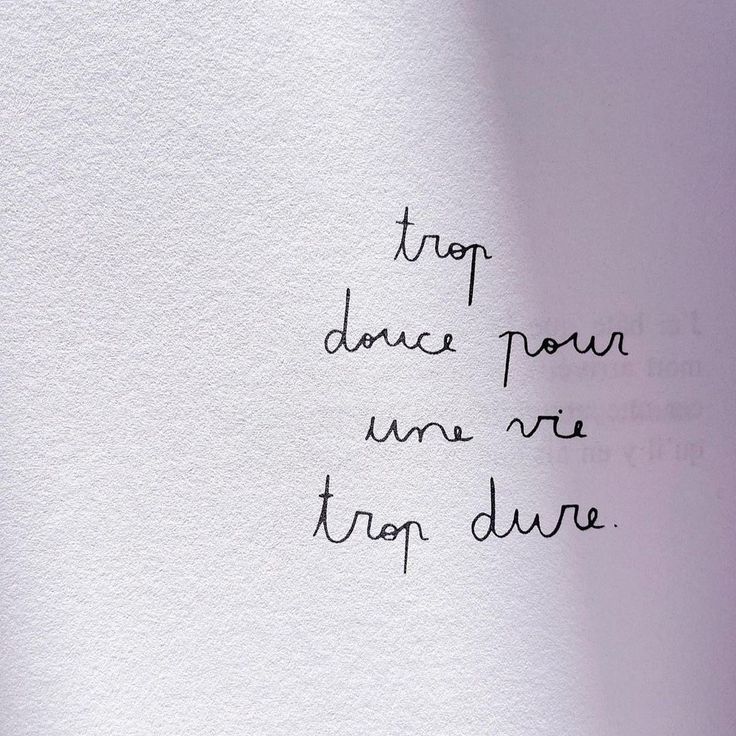 trop
douce pour
une vie
trop dure.